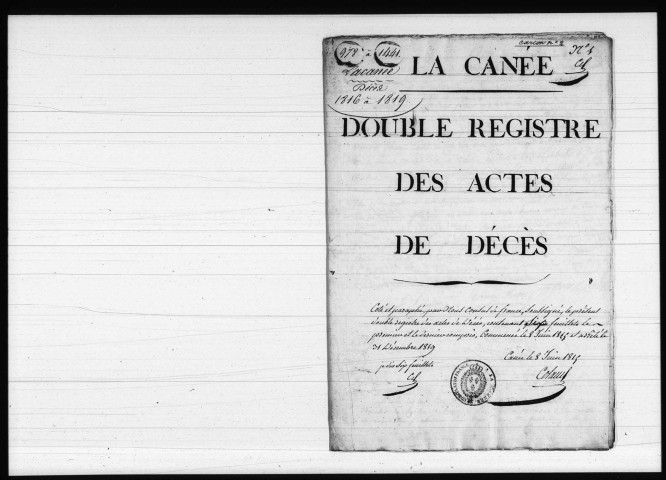 978 à 1441
Lacanée
Décès
1816 à 1819
carton nº 2
Nº 1
LA CANÉE
DOUBLE REGISTRE
DES ACTES
DE DÉCÈS
Coté et paraphé, par Nous Consul de france, soussigné, le présent
double registre des actes de Décès, contenant feuillets le
premier et le dernier compris, Commencé le 8 Juin 1815 et arrêté le
31 Décembre 1819
Canée le 8 Juin 1815
feuillets